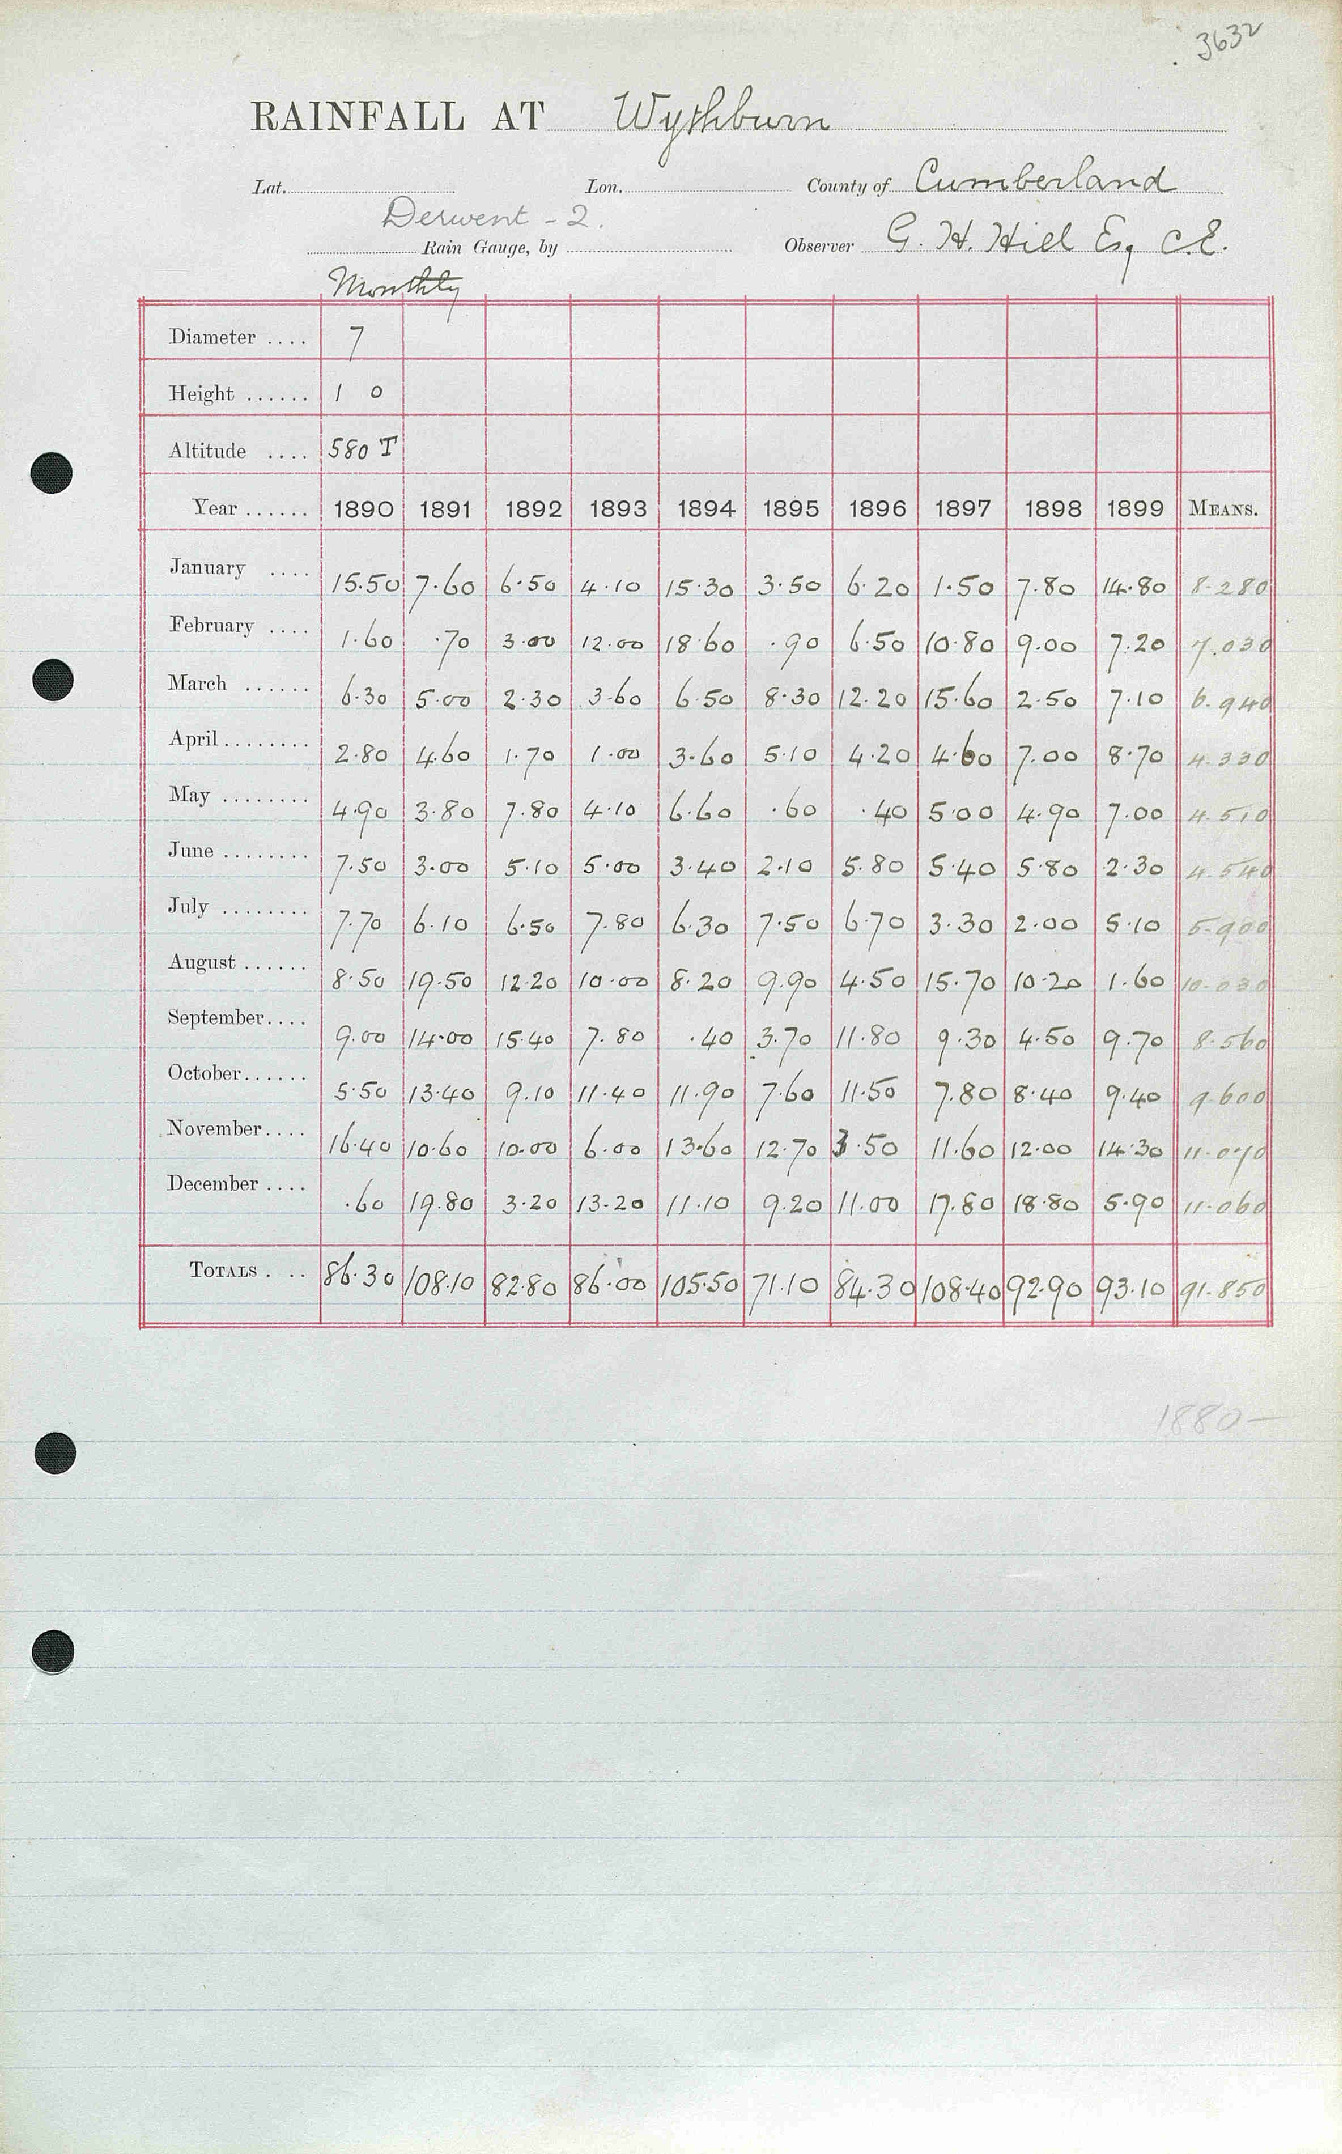 3632
RAINFALL AT Wythburn
Lat. Lon. County of Cumberland
Derwent - 2.
Rain Gauge, by Observer G. H. Hill Esq C.E.
Monthly
Diameter .... 7
Height ...... 1 0
Altitude .... 580 T
Year ...... 1890 1891 1892 1893 1894 1895 1896 1897 1898 1899 MEANS.
January .... 15.50 7.60 6.50 4.10 15.30 3.50 6.20 1.50 7.80 14.80 8.280
February .... 1.60 .70 3.00 12.00 18.60 .90 6.50 10.80 9.00 7.20 7.030
March ...... 6.30 5.00 2.30 3.60 6.50 8.30 12.20 15.60 2.50 7.10 6.940
April ........ 2.80 4.60 1.70 1.00 3.60 5.10 4.20 4.60 7.00 8.70 4.330
May ........ 4.90 3.80 7.80 4.10 6.60 .60 .40 5.00 4.90 7.00 4.510
June ........ 7.50 3.00 5.10 5.00 3.40 2.10 5.80 5.40 5.80 2.30 4.540
July ........ 7.70 6.10 6.50 7.80 6.30 7.50 6.70 3.30 2.00 5.10 5.900
August ...... 8.50 19.50 12.20 10.00 8.20 9.90 4.50 15.70 10.20 1.60 10.030
September.... 9.00 14.00 15.40 7.80 .40 3.70 11.80 9.30 4.50 9.70 8.560
October...... 5.50 13.40 9.10 11.40 11.90 7.60 11.50 7.80 8.40 9.40 9.600
November.... 16.40 10.60 10.00 6.00 13.60 12.70 3.50 11.60 12.00 14.30 11.070
December .... .60 19.80 3.20 13.20 11.10 9.20 11.00 17.80 18.80 5.90 11.060
TOTALS . .. 86.30 108.10 82.80 86.00 105.50 71.10 84.30 108.40 92.90 93.10 91.850
1880-